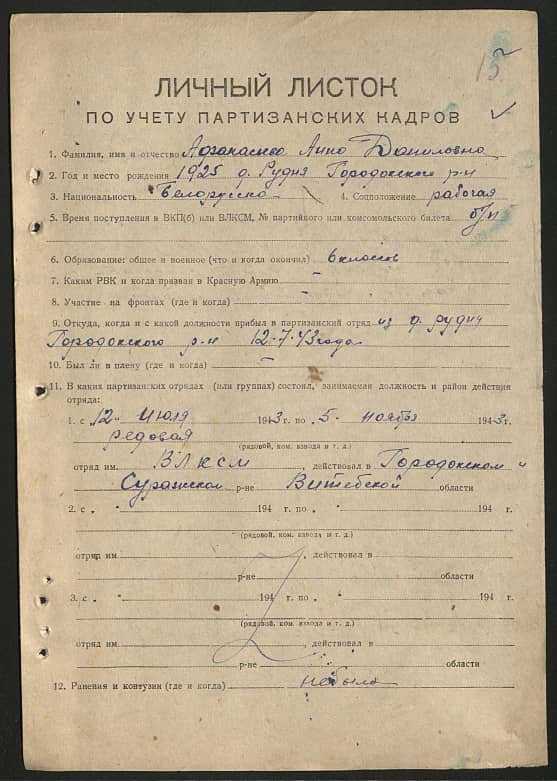 15
ЛИЧНЫЙ ЛИСТОК
ПО УЧЕТУ ПАРТИЗАНСКИХ КАДРОВ
1. Фамилия, имя и отчество Афанасьева Анна Даниловна
2. Год и место рождения 1925 д. Рудня Городокского р-н
3. Национальность Белорусска 4. Соцположение рабочая
5. Время поступления в ВКП(б) или ВЛКСМ, № партийного или комсомольского билета б/п
6. Образование: общее и военное (что и когда окончил) 6 классов
7. Каким РВК и когда призван в Красную Армию —
8. Участие на фронтах (где и когда) —
9. Откуда, когда и с какой должности прибыл в партизанский отряд из д. рудни
Городокского р-н 12.7.43 года
10. Был ли в плену (где и когда) —
11. В каких партизанских отрядах (или группах) состоял, занимаемая должность и район действия
отряда:
1. с „12" Июля 1943 г. по „5" ноября 1943 г.
редовая
(рядовой, ком. взвода и т. д.)
отряд им. ВЛКСМ, действовал в Городокском и
Суражском р-не Витебской области
2. с „ " 194 г. по „ " 194 г.
(рядовой, ком. взвода и т. д.)
отряд им , действовал в
р-не области
3. с „ " 194 г. по „ " 194 г.
(рядовой, ком. взвода и т. д.)
отряд им. , действовал в
р-не области
12. Ранения и контузии (где и когда) небыло